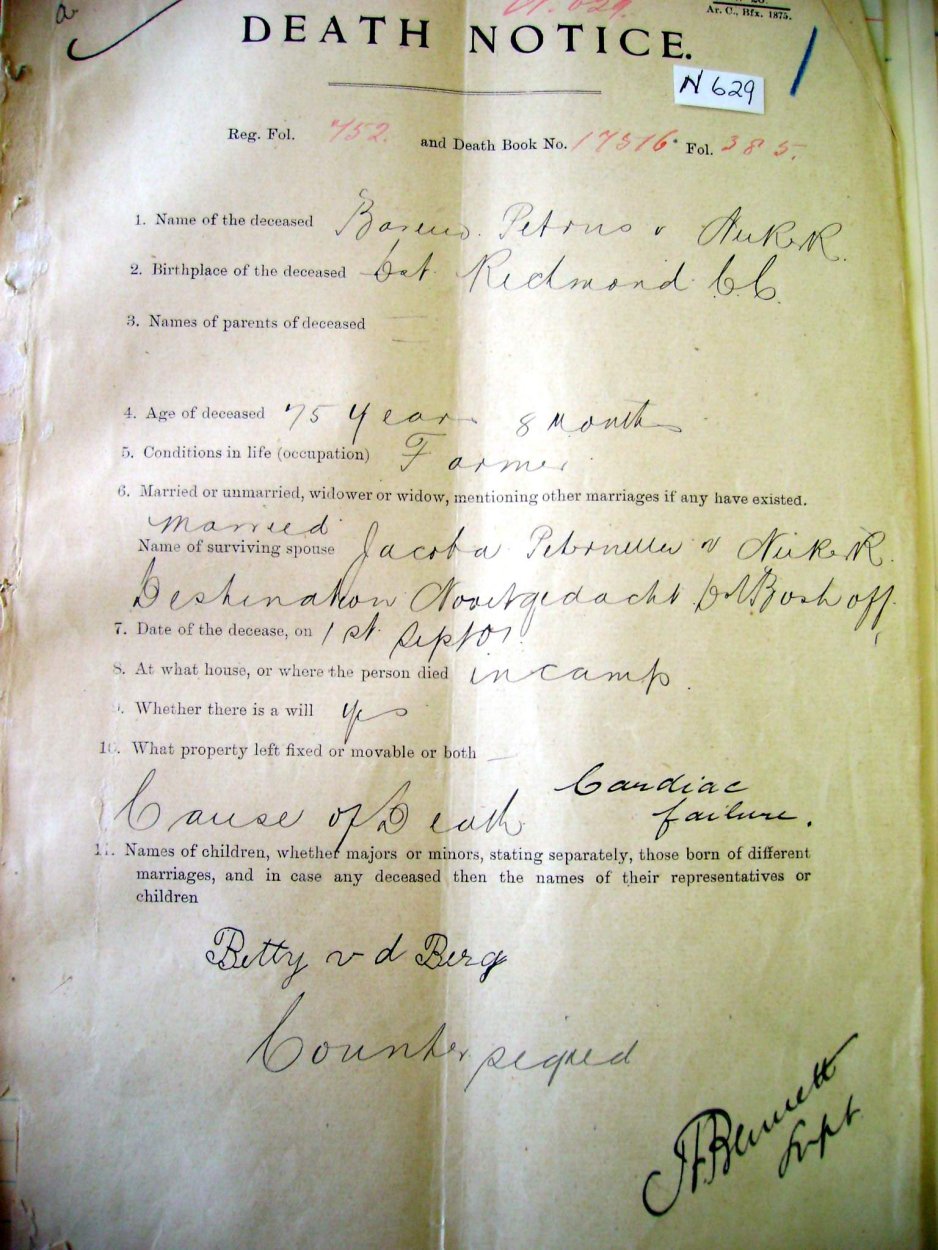 a.
N. 629.
Ar. C., Bfx. 1875.
DEATH NOTICE.
N 629
Reg. Fol. 752. and Death Book No. 17516 Fol. 385.
1. Name of the deceased Barend Petrus v Niekerk.
2. Birthplace of the deceased Dst. Richmond C.C.
3. Names of parents of deceased —
4. Age of deceased 75 Years 8 Months
5. Conditions in life (occupation) Farmer
6. Married or unmarried, widower or widow, mentioning other marriages if any have existed.
Married
Name of surviving spouse Jacoba v Niekerk.
Destination Nooitgedacht Dst Boshoff.
7. Date of the decease, on 1st. Sept 01.
8. At what house, or where the person died in camp.
9. Whether there is a will yes
10. What property left fixed or movable or both —
Cause of Death Cardiac
failure.
11. Names of children, whether majors or minors, stating separately, those born of different
marriages, and in case any deceased then the names of their representatives or
children
Betty v d Berg
Counter signed
Bennett
Supt